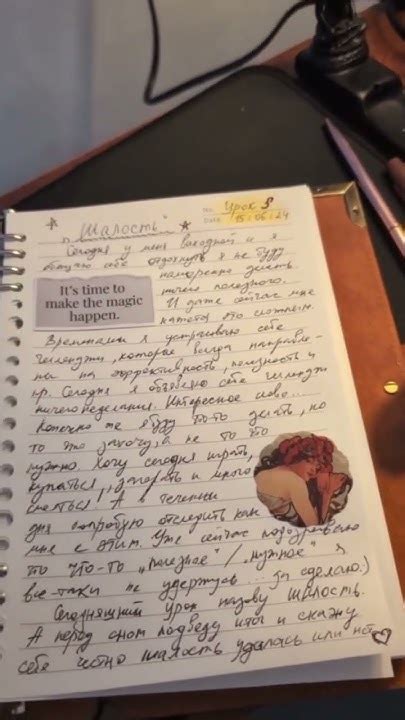 No. Урок 5
☆ "Шалость" ★ Date 15:06:24
Сегодня у меня выходной и я
обещаю себе отдохнуть я не буду
намеренно делать
ничего полезного.
It's time to
make the magic
happen.
И даже сейчас мне
кажется это сложным.
Временами я устраиваю себе
челленджи, которые всегда направле-
ны на эффективность, полезность и
пр. Сегодня я объявляю себе челлендж
ничегонеделания. Интересное слово...
Конечно же я буду что-то делать, но
то что захочу, а не то что
нужно. Хочу сегодня играть,
купаться, загорать и много
смеяться! А в течении
дня попробую отследить как
мне с этим. Уже сейчас подозреваю
то что-то „полезное"/„нужное" я
все-таки не удержусь... за сделаю:)
Сегодняшний урок назову Шалость.
А перед сном подведу итог и скажу
себе честно шалость удалась или нет ♡